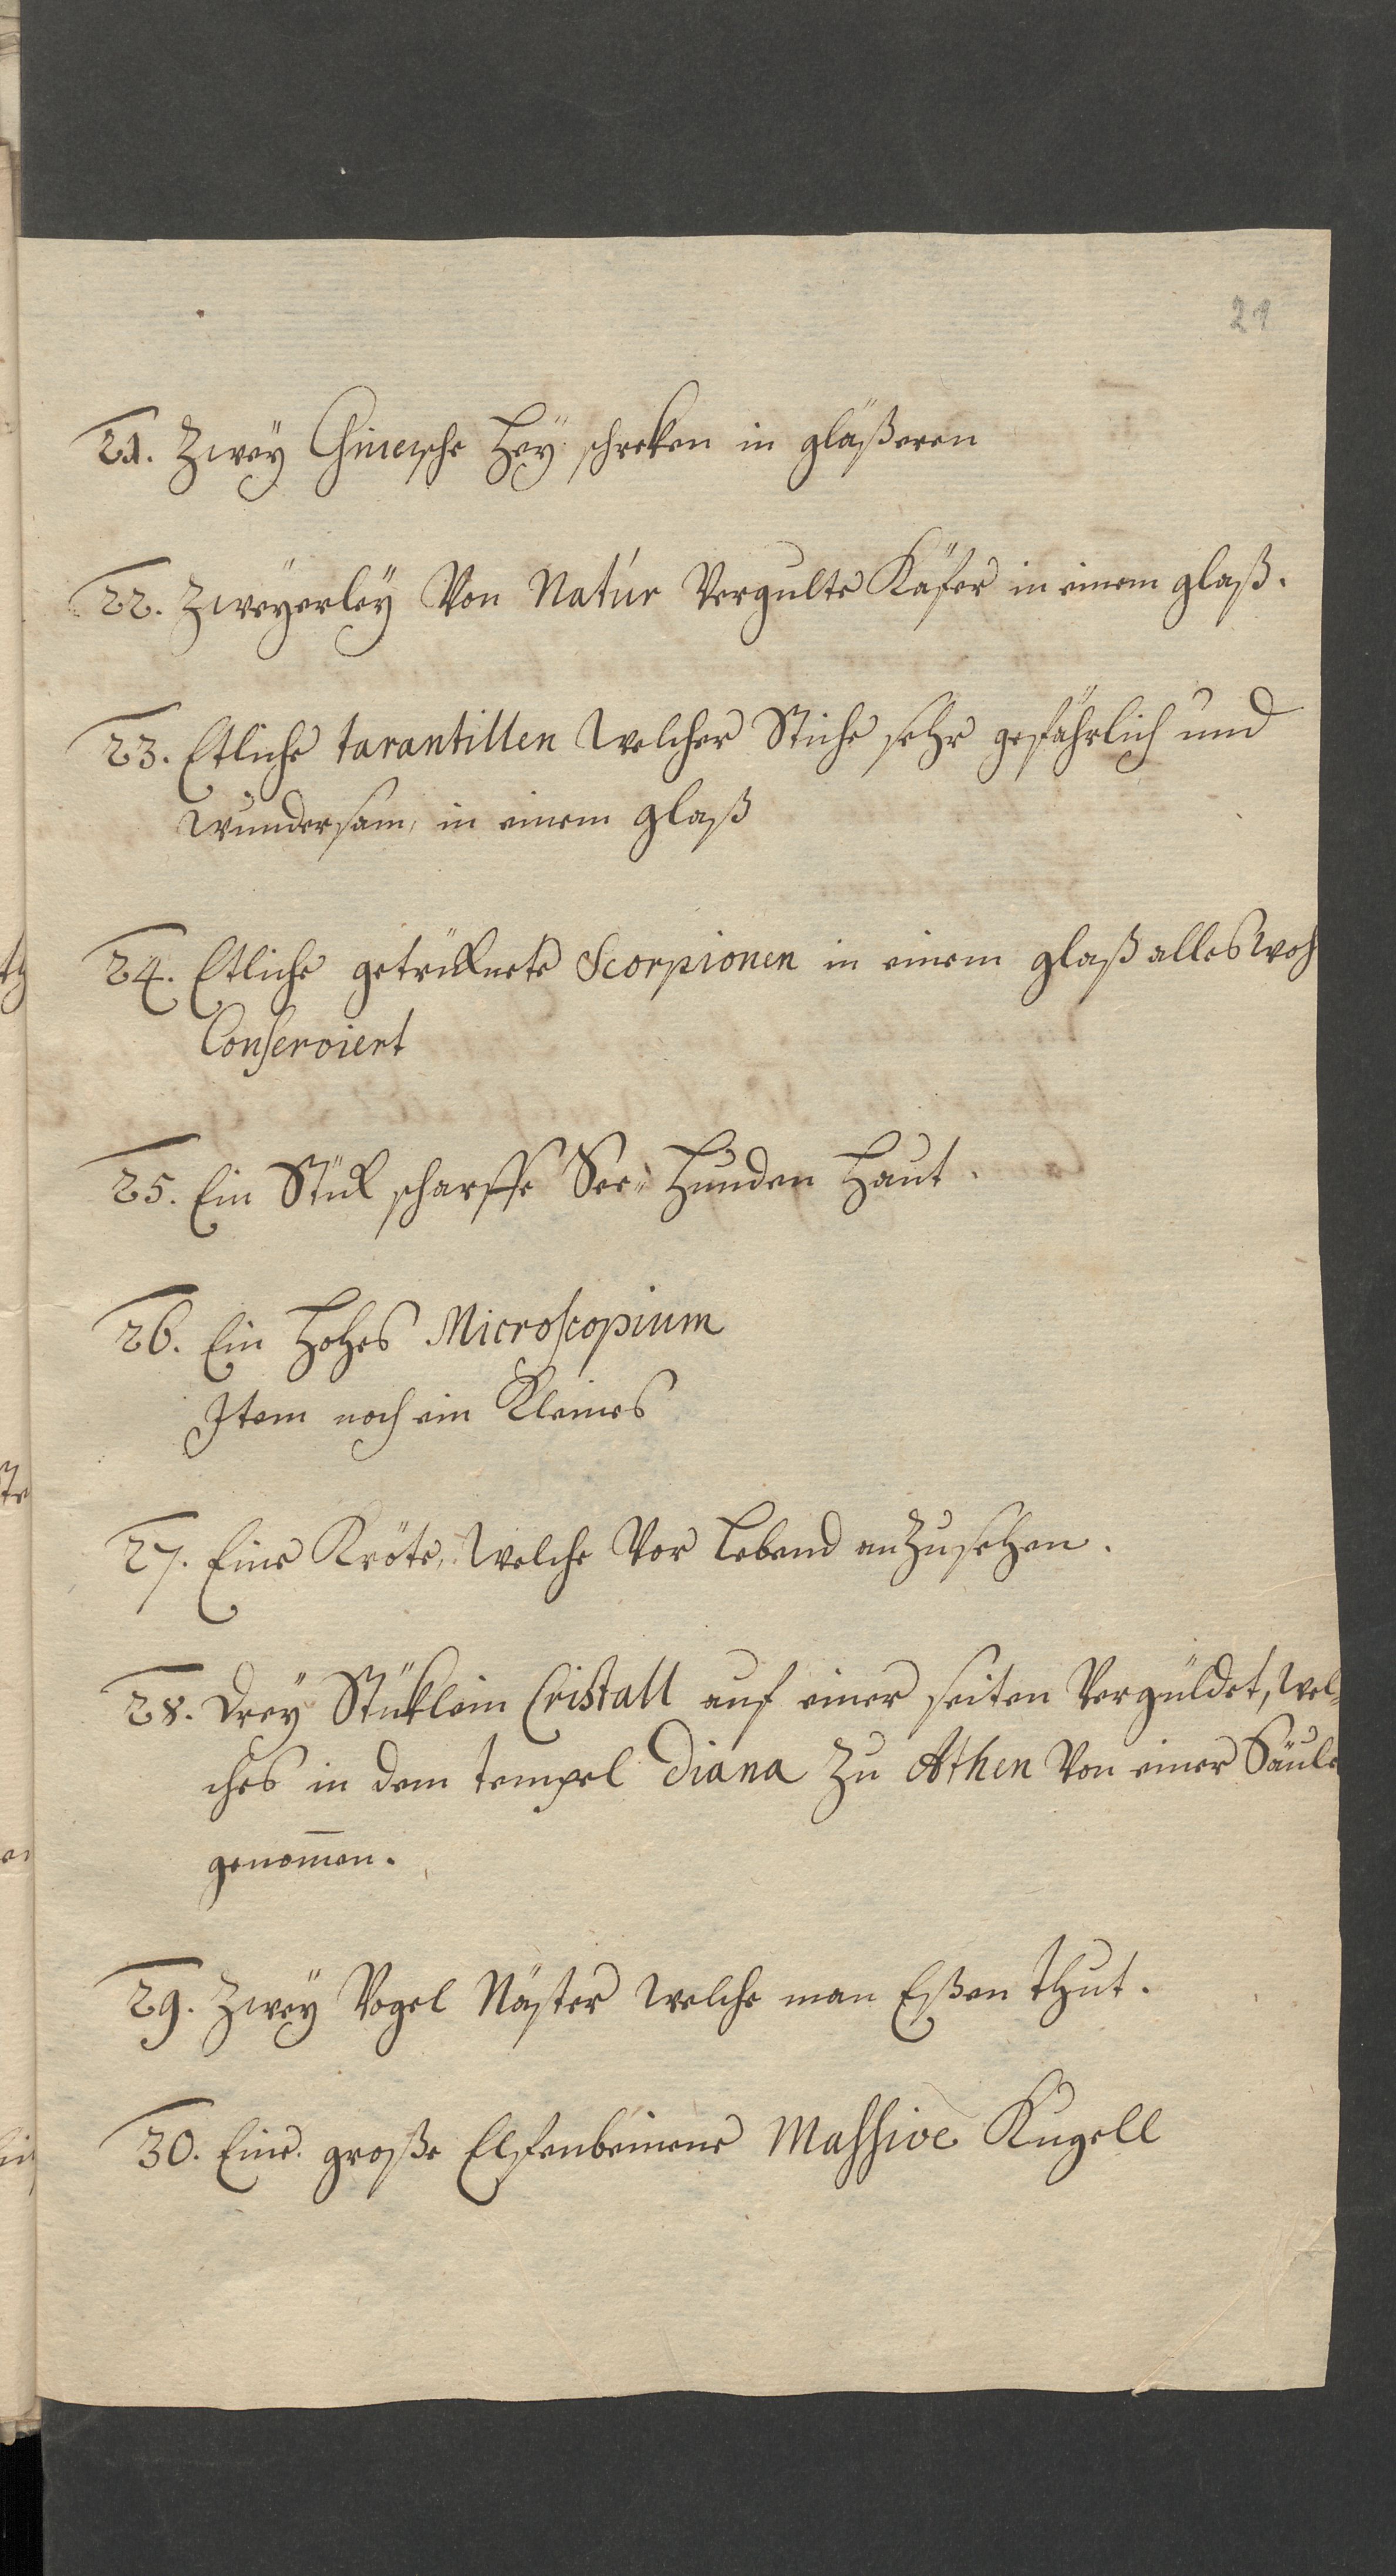 21
21. Zweÿ Chinesche Heÿ schreken in gläßeren
22. Zweÿerleÿ Von Natúr Vergulte Käfer in einem glaß.
23. Etliche tarantillen Welcher Stiche sehr gefährlich und
Wundersam, in einem glaß
24. Etliche getrüknete Scorpionen in einem glaß alles woh
Conserviert
25. Ein Stük scharffe See-Hunden Haut.
26. Ein Hohes Microscopium
Item noch ein Kleines
27. Eine Kröte, Welche Vor Lebend anzusehen.
28. Dreÿ Stüklein Cristall auf einer seiten Vergüldet, wel-
ches in dem tempel Diana Zu Athen Von einer Säule
genom̄en.
29. Zweÿ Vogel Näster welche man Eßen thut.
30. Eine große Elfenbeinene Massive Kugell